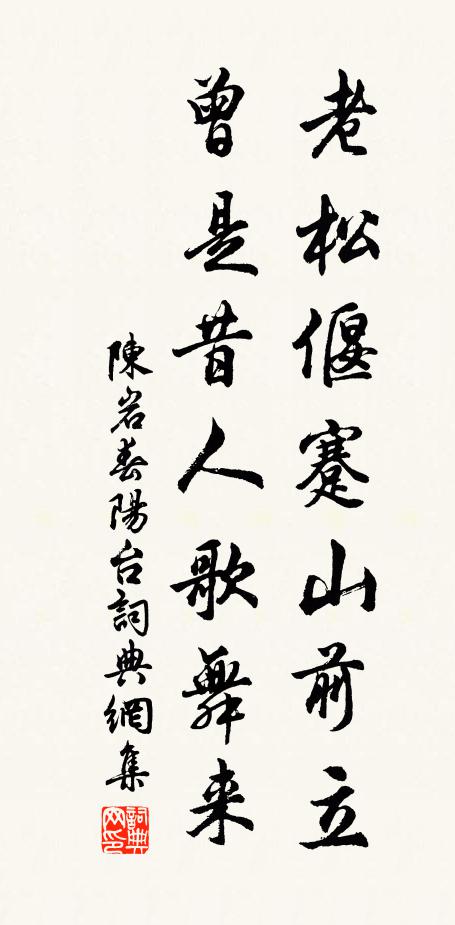 老松偃蹇山前立
曾是昔人歌舞来
陳岩春陽台詞典網集
詞典网印